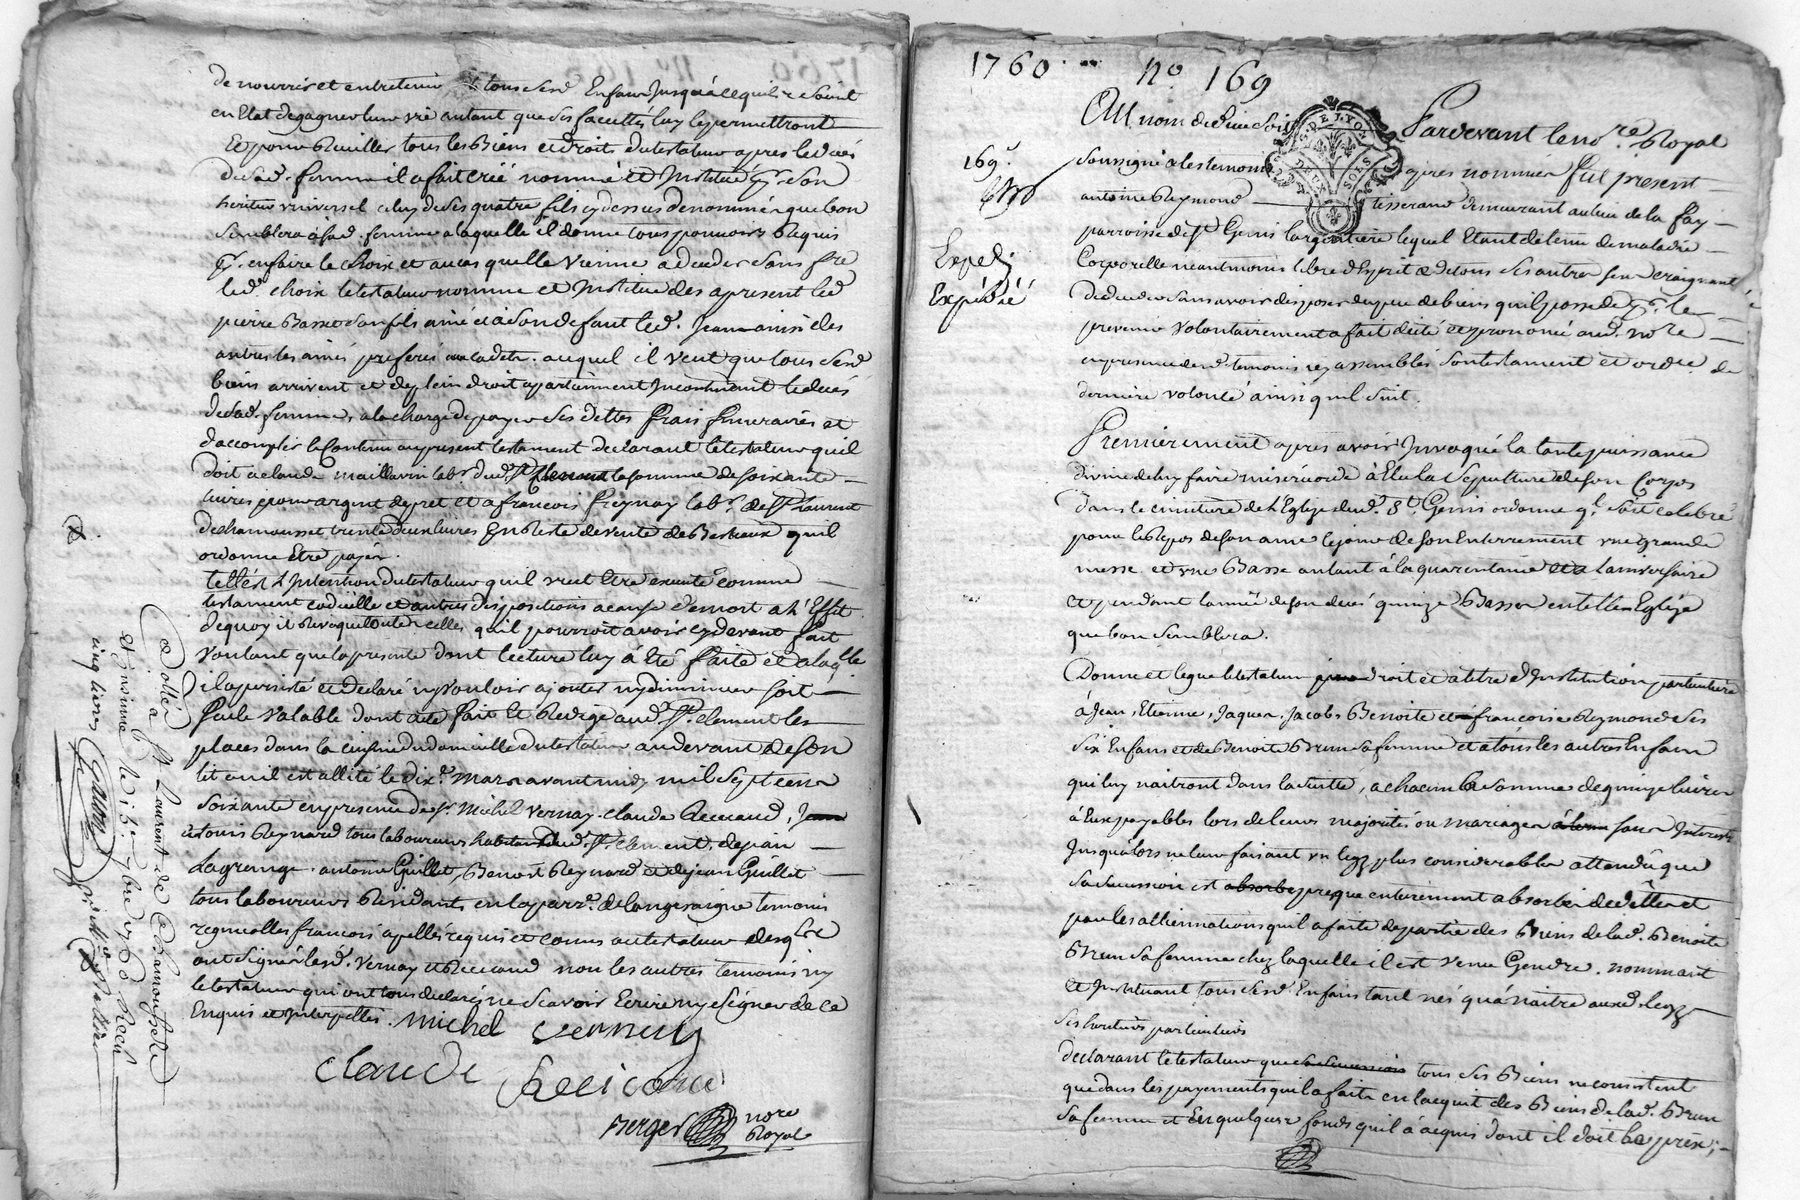 de nourrir et entretenir tous sesd. Enfans Jusqu'à cequils soint
en Etat de gagner leur vie autant que ses facultés luy lepermettront
Et pour Recuillir tous les Biens et droits dutestateur apres ledeces
desad. femme il a fait créé nommé et Institué pr. son
heritier universel celuy deses quatre fils cydessus denommés que bon
semblera à sad. femme a laquelle il donne tous pouvoirs Requis
pr. en faire le Choix et au cas quelle vienne a deceder sans fre
led. choix letestateur nomme et Institue des apresent led
pierre Basset son fils ainé et à son defaut led. Jean ainsi des
autres les ainés preferés aux cadets. auquel il veut que tous sesd
biens arrivent et deplein droit apartiennent Incontinent ledeces
desad. femme, a la charge de payer ses dettes frais funeraires et
daccomplir le Contenu aupresent testament declarant letestateur quil
doit a claude maillavin labr. dud. St. Clement la somme de soixante
livres pour argent depret et a francois freynay labr. de St. Laurent
dechamousset trente deux livres En Reste devente de Bestiaux quil
ordonne Etre payés.
telle est L'Intention dutestateur quil veut Etre executé comme
testament codicille et autres dispositions a cause demort a l'Effet
dequoy il Revoque toutes celles quil pourroit avoir cydevant fait
Voulant que la presente dont lecture luy à Eté faite et a laqlle
il a persisté et declaré ny vouloir ajouter ny diminuer soit
seule valable dont acte fait et Redigé aud. St. clement les
places dans la cuisine du domicille dutestateur audevant de son
lit ou il est allité le dix. mars avant midy mil sept cens
soixante en presence de sr. Michel Vernay. claude Reccand, Jean
Louis Reynard tous laboureurs habitans dud. St. clement, dejean
Lagrange. antoine Guillet, Benoit Reynard et dejean Guillet
tous laboureurs Residants en la parr. de longesaigne temoins
regnicolles francois apellés requis et conus autestateur desqls
ont signé lesd. Vernay et Reccand non les autres temoins ny
letestateur qui ont tous declaré ne scavoir Ecrire ny signer de ce
Enquis et Interpellés. Michel Vernay
Claude
Berger nore
Royal
Collé
a St Laurent de Chamousset
cinq livres
1760 .. no. 169
Au nom de Dieu soit Pardevant lenore. Royal
169e.
Expedi
Expédié
soussigné et les temoins apres nommés fut present
antoine Reymond tisserand demeurant au lieu de la fay
parroisse de st. Genis Largentiere lequel Etant detenu de maladie
Corporelle neantmoins libre d'Esprit & de tous ses autres sens craignant
dedeceder sans avoir disposé du peu de biens quil possede pr. le
prevenir volontairement a fait dicté et prononcé aud. nore
en presence desd. temoins icy assemblés son testament et ordce. de
derniere volonté ainsi quil suit.
Premierement apres avoir Invoqué la toute puissance
divine de luy faire misericorde à Elu la Sepulture de son Corps
dans le cimitiere de l'Eglise dud. St Genis ordonne ql. soit celebré
pour le Repos de son ame le jour de son Enterrement une grande
messe et une Basse autant à la quarantaine et a Lanniversaire
et pendant l'année de son deces quinze Basses en telle Eglise
que bon semblera.
Donne et legue letestateur par droit et a titre d'Institution particuliere
à Jean, Etienne, Jaques, Jacob, Benoite et francoise Reymond ses
six Enfans et de Benoite Brun sa femme et a tous les autres Enfans
qui luy naitront dans la suitte, a chacun la somme de quinze livres
à Eux payables lors de leurs majorités ou mariages à leur sans Interets
Jusqu'alors ne leur faisant un legs plus considerable attendu que
sa succession est absorbé presque entierement absorbée de dettes et
par les alliennations quil a faites de partie des Biens de lad. Benoite
Brun sa femme chez laquelle il est venu Gendre. nommant
et Instituant tous sesd. Enfans tant nés qu'à naitre auxd. legs
ses heritiers particuliers
declarant letestateur que sa succession tous ses Biens ne consistent
que dans les payements quil a faits en lacquit des Biens de lad. Brun
sa femme et En quelques fonds quil à acquis dont il doit le prix;